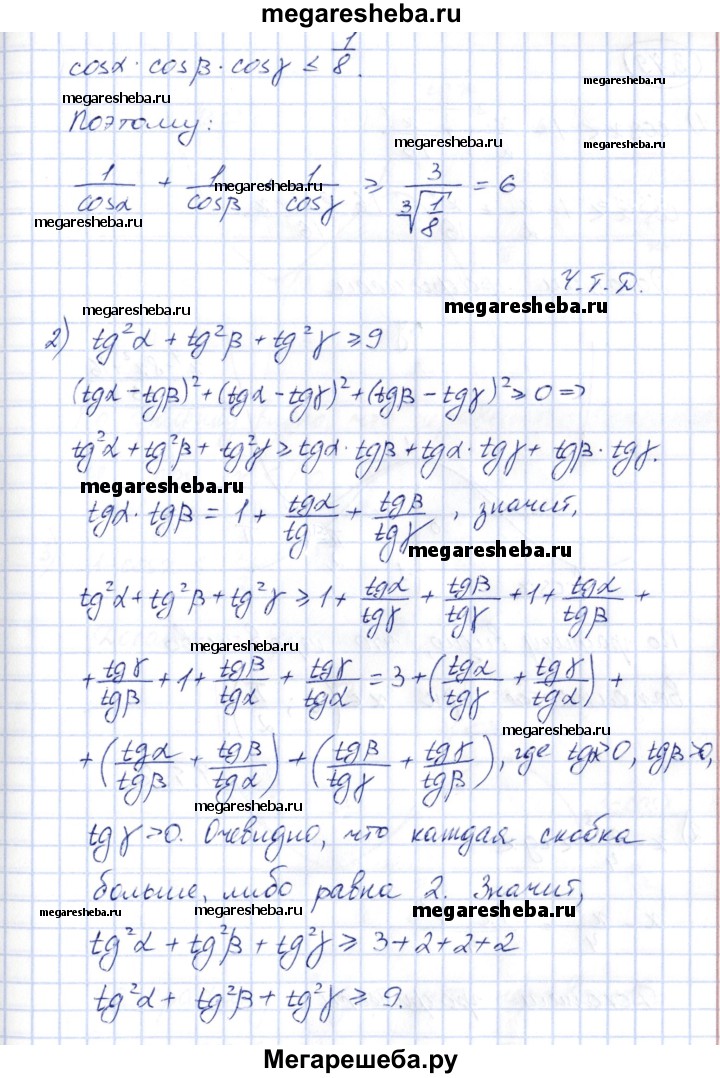 megaresheba.ru
cosα · cosβ · cosγ ≤ 1/8.
megaresheba.ru
megaresheba.ru
Поэтому:
megaresheba.ru
megaresheba.ru
1/cosα + 1/cosβ + 1/cosγ ≥ 3/∛(1/8) = 6
megaresheba.ru
megaresheba.ru
Ч.Т.Д.
megaresheba.ru
megaresheba.ru
2) tg²α + tg²β + tg²γ ≥ 9
(tgα - tgβ)² + (tgα - tgγ)² + (tgβ - tgγ)² ≥ 0 =>
tg²α + tg²β + tg²γ ≥ tgα · tgβ + tgα · tgγ + tgβ · tgγ.
megaresheba.ru
tgα · tgβ = 1 + tgα/tg + tgβ/tgγ, значит,
megaresheba.ru
tg²α + tg²β + tg²γ ≥ 1 + tgα/tgγ + tgβ/tgγ + 1 + tgα/tgβ +
megaresheba.ru
+ tgγ/tgβ + 1 + tgβ/tgα + tgγ/tgα = 3 + (tgα/tgγ + tgγ/tgα) +
megaresheba.ru
+ (tgα/tgβ + tgβ/tgα) + (tgβ/tgγ + tgγ/tgβ), где tgα>0, tgβ>0,
megaresheba.ru
tgγ >0. Очевидно, что каждая скобка
больше, либо равна 2. Значит,
megaresheba.ru megaresheba.ru megaresheba.ru
tg²α + tg²β + tg²γ ≥ 3+2+2+2
tg²α + tg²β + tg²γ ≥ 9.
Мегарешеба.ру